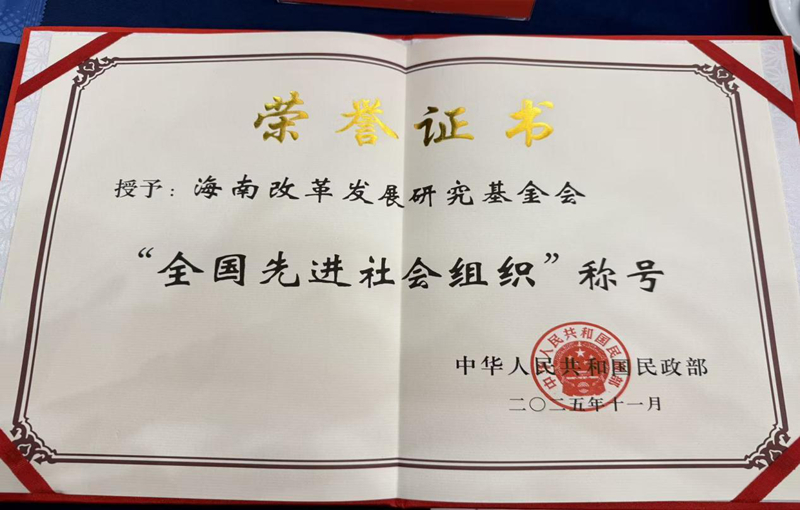 荣誉证书
授予：海南改革发展研究基金会
“全国先进社会组织”称号
中华人民共和国民政部
二〇二五年十一月